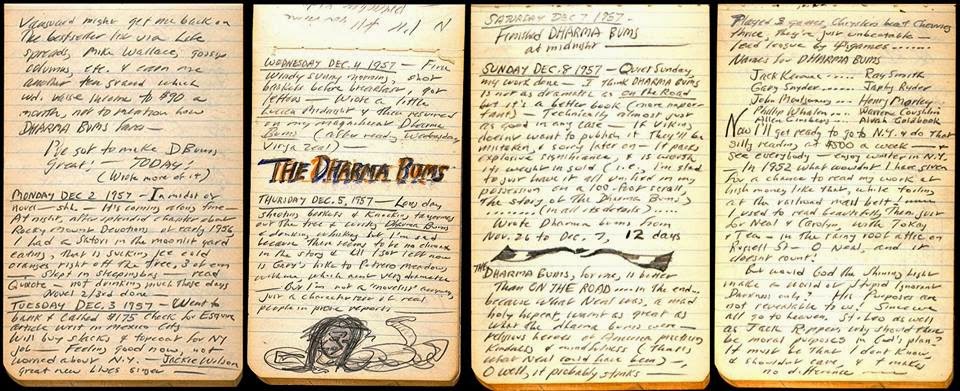 Vanguard might get me back on
the bestseller list via Life
spreads, Mike Wallace, gossip
columns, etc. & earn me
another ten grand which
wd. raise income to $90 a
month, not to mention how
DHARMA BUMS fares —
I've got to make D Bums
great! — TODAY!
(Write more of it)
MONDAY DEC 2 1957 — In midst of
novel — shh — It's coming along fine
At night, after splendid chapter about
Rocky Mount Devotions of early 1956
I had a Satori in the moonlit yard
eating, that is sucking ice cold
oranges right off the tree, 3 of em
Slept in sleepingbag — read
Quixote — not drinking much these days
Novel 2/3rd done
TUESDAY DEC. 3 1957 — Went to
bank & cashed $175 check for Esquire
article writ in Mexico City
Will buy slacks & topcoat for NY
job — Feeling good now, not
worried about N.Y. — JACKIE Wilson
great new blues singer —
WEDNESDAY DEC. 4 1957 — Fine
windy sunny morning, shot
baskets before breakfast, got
letters — Wrote a little
Lucien Midnight & then resumed
on my magnum Dharma
Bums (after reading Wednesday
THE DHARMA BUMS
THURSDAY DEC. 5, 1957 — Long day
shooting baskets & knocking tangerines
out the tree & writing Dharma Bums
& drinking whiskey but I'm sad
because there seems to be no climax
in the story & all I got left now
is Gary's hike to Potrero Meadows
with me, which aint very dramatic
— But I'm not a "novelist" anyway,
just a characterizer of real
people in prose reports —
SATURDAY DEC 7 1957
Finished DHARMA BUMS
at midnight
SUNDAY DEC. 8 1957 — Quiet Sunday
my work done — I think DHARMA BUMS
is not as dramatic as On the Road
but it's a better book (more impor
tant) — Technically almost just
as good in any case — If Viking
doesnt want to publish it they'll be
mistaken, & sorry later on — It packs
explosive significance, & is worth
its weight in gold (i.e. I'm glad
to just have it all unified in my
possession on a 100-foot scroll,
the story of The Dharma Bums)
...... (in all its details) .....
Wrote Dharma Bums from
Nov. 26 to Dec. 7, 12 days
THE DHARMA BUMS, for me, is better
than ON THE ROAD ..... In the end,
because what Neal was, a mad
holy hepcat, wasnt as great as
what the dharma bums were —
religious heroes of America practising
kindness & mindfulness (that is
what Neal could have been) —
O well, it probably stinks —
Played 3 games, Chryslers beat Chevvies
thrice, they're just unbeatable —
lead league by 4 games .....
Names for DHARMA BUMS
Jack Kerouac ..... Ray Smith
Gary Snyder ..... Japhy Ryder
John Montgomery ... Henry Morley
Philip Whalen ... Warren Coughlin
Allen Ginsberg ... Alvah Goldbook
Now I'll get ready to go to N.Y. & do that
silly reading at $500 a week — &
see everybody — enjoy winter in N.Y.
— In 1952 what wouldnt I have given
for a chance to read my work at
lush money like that, while toiling
at the railroad mail belt! —
I used to read beautifully then just
for Neal & Carolyn, with Tokay
& Tea — in the living room attic on
Russell St — O Neal, and it
doesnt count!
But would God the Shining Light
make a world of stupid Ignorant
Darkness only? — His Purposes are
not revealable to me. Since we
all go to heaven, St. Leo as well
as Jack Ripper, why should there
be moral purposes in God's plan?
It must be that I dont know
& shouldnt care — makes
no difference —